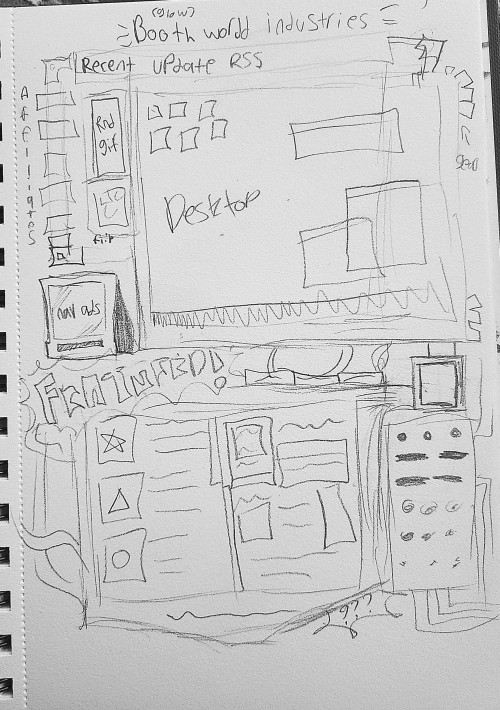 (glow)
Booth world industries
Recent update RSS
Affiliates
rnd
gif
Desktop
nav ads
FEATURED!
???